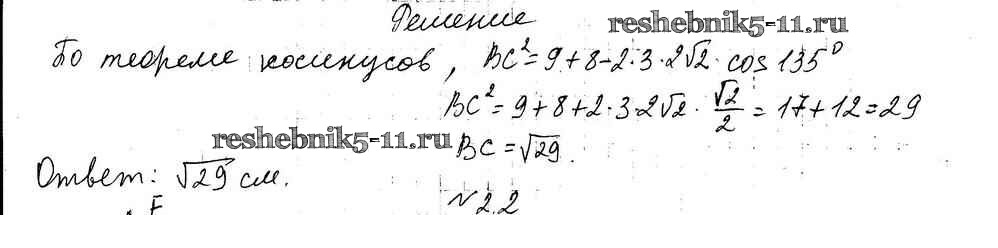 Решение
reshebnik5-11.ru
По теореме косинусов, BC² = 9 + 8 - 2·3·2√2 · cos 135⁰
BC² = 9 + 8 + 2·3·2√2 · √2/2 = 17 + 12 = 29
reshebnik5-11.ru
BC = √29.
Ответ: √29 см.
N 2.2
F